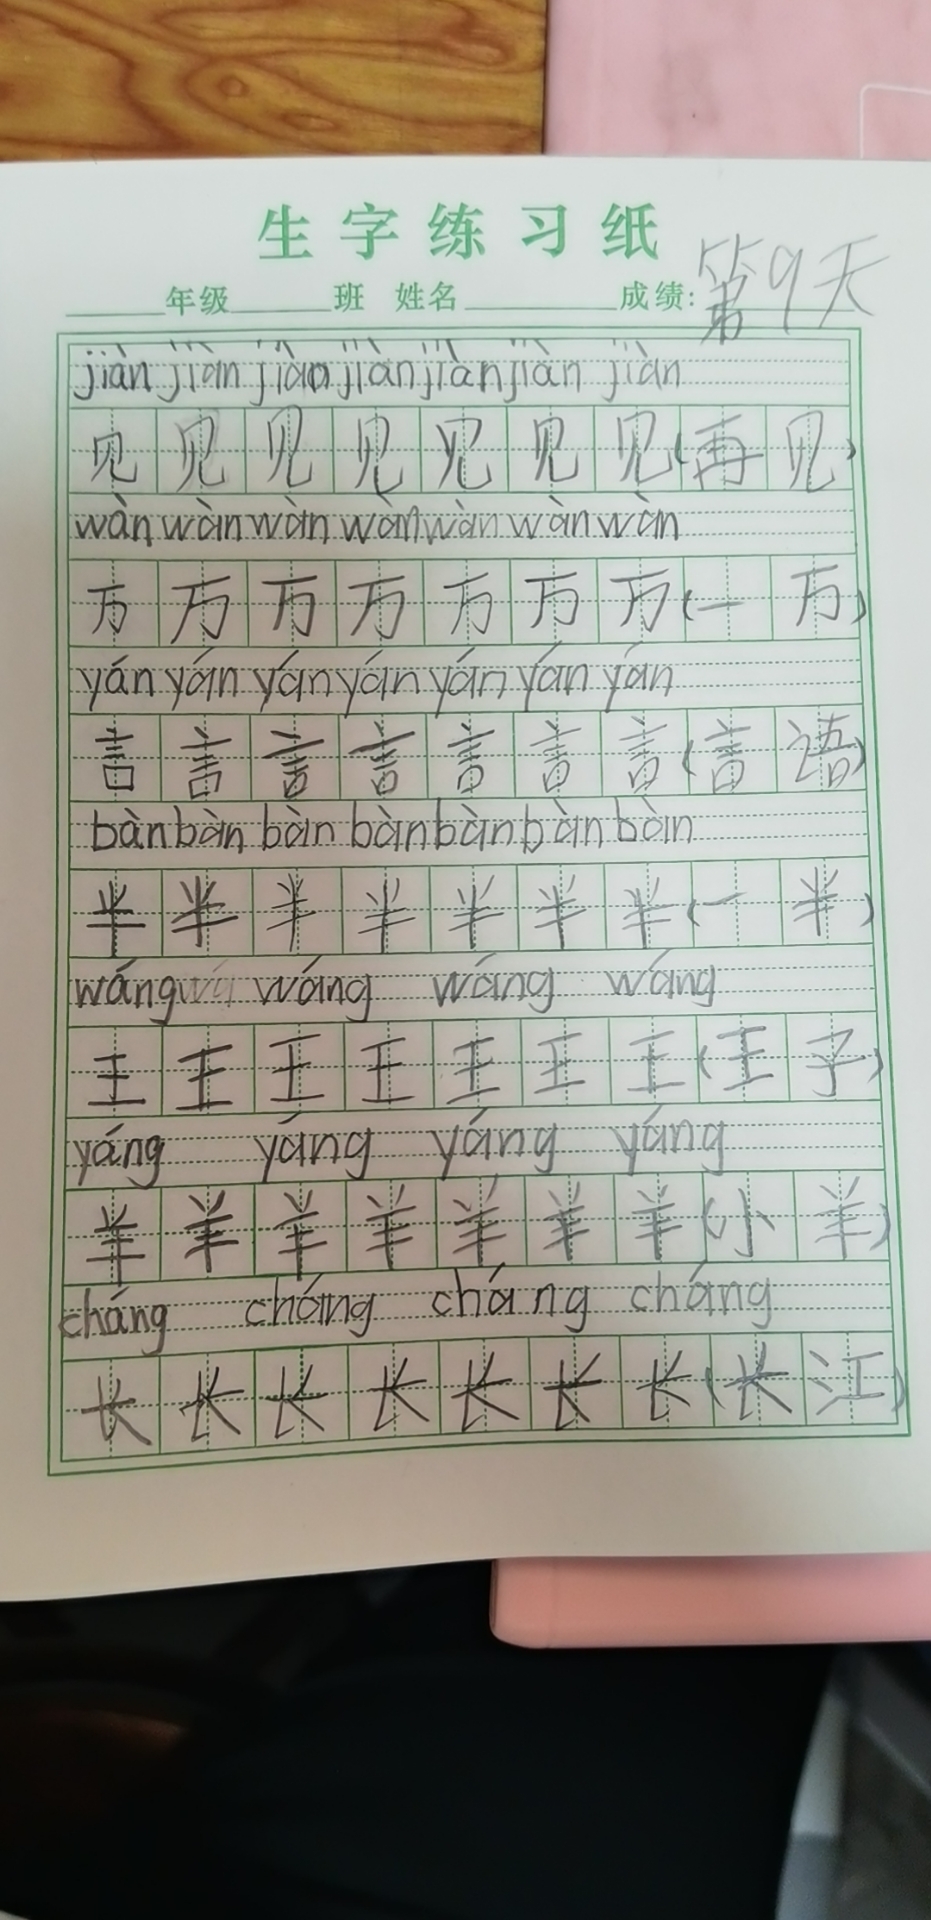 生字练习纸
年级 班 姓名 成绩: 第9天
jiàn jiàn jiàn jiàn jiàn jiàn jiàn
见 见 见 见 见 见 见 (再 见)
wàn wàn wàn wàn wàn wàn wàn
万 万 万 万 万 万 万 (一 万)
yán yán yán yán yán yán yán
言 言 言 言 言 言 言 (言 语)
bàn bàn bàn bàn bàn bàn bàn
半 半 半 半 半 半 半 (一 半)
wáng wáng wáng wáng
王 王 王 王 王 王 王 (王 子)
yáng yáng yáng yáng
羊 羊 羊 羊 羊 羊 羊 (小 羊)
cháng cháng cháng cháng
长 长 长 长 长 长 长 (长 江)